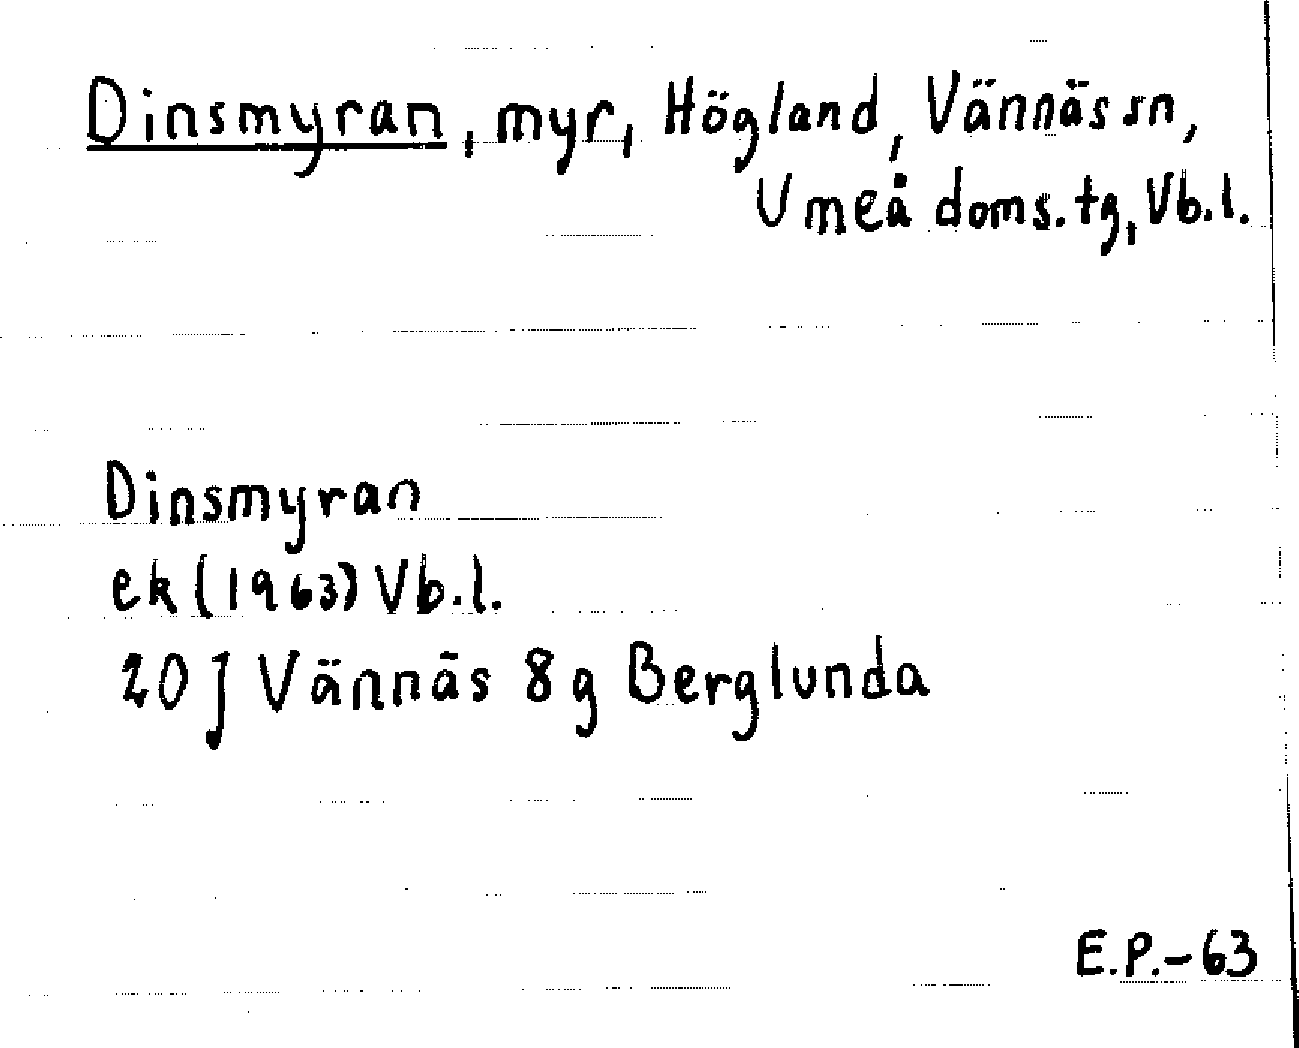 Dinsmyran, myr, Högland, Vännäs sn,
Umeå doms.tg, Vb.l.
Dinsmyran
ek (1963) Vb.l.
20 J Vännäs 8 g Berglunda
E.P.-63